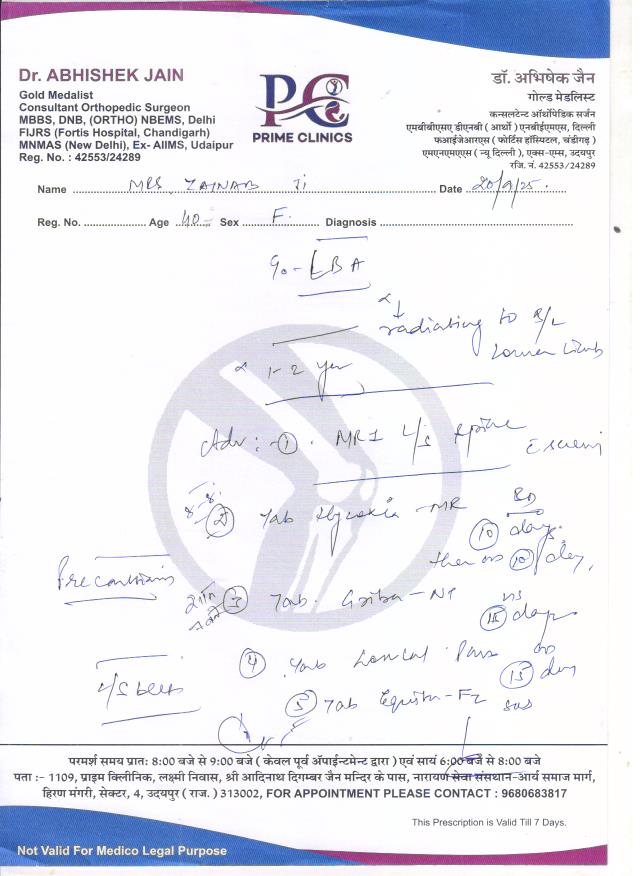 Dr. ABHISHEK JAIN
Gold Medalist
Consultant Orthopedic Surgeon
MBBS, DNB, (ORTHO) NBEMS, Delhi
FIJRS (Fortis Hospital, Chandigarh)
MNMAS (New Delhi), Ex- AIIMS, Udaipur
Reg. No. : 42553/24289
PC
PRIME CLINICS
डॉ. अभिषेक जैन
गोल्ड मेडलिस्ट
कन्सलटेन्ट ऑर्थोपेडिक सर्जन
एमबीबीएसए डीएनबी ( आर्थो ) एनबीईएमएस, दिल्ली
फआईजेआरएस ( फोर्टिस हॉस्पिटल, चंडीगढ़ )
एमएनएमएएस ( न्यू दिल्ली ), एक्स-एम्स, उदयपुर
रजि. नं. 42553/24289
Name MRS. ZAINAB Ji Date 20/9/25.
Reg. No. Age 40 Sex F. Diagnosis
LBA
radiating to B/L
Lower limb
1-2 year
Adv :- ① MRI L/S Spine
② Tab MR BD
⑩ days.
then OD ⑩ day,
Precautions
③ Tab. NT
days
④ Tab OD
⑮ day
L/S belt
⑤ Tab SOS
परमर्श समय प्रातः 8:00 बजे से 9:00 बजे ( केवल पूर्व अ‍ॅपाईन्टमेन्ट द्वारा ) एवं सायं 6:00 बजे से 8:00 बजे
पता :- 1109, प्राइम क्लिीनिक, लक्ष्मी निवास, श्री आदिनाथ दिगम्बर जैन मन्दिर के पास, नारायण सेवा संसथान-आर्य समाज मार्ग,
हिरण मंगरी, सेक्टर, 4, उदयपुर ( राज. ) 313002, FOR APPOINTMENT PLEASE CONTACT : 9680683817
This Prescription is Valid Till 7 Days.
Not Valid For Medico Legal Purpose